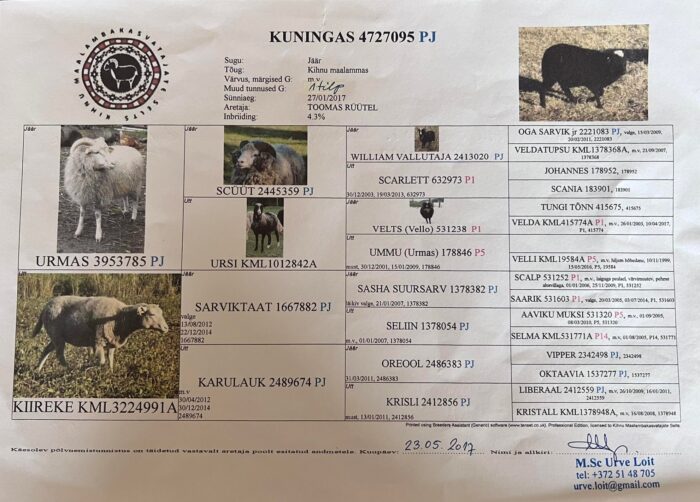 KIHNU MAALAMBAKASVATAJATE SELTS
KUNINGAS 4727095 PJ
Sugu: Jäär
Tõug: Kihnu maalammas
Värvus, märgised G: m.v.
Muud tunnused G: 1 tilp
Sünniaeg: 27/01/2017
Aretaja: TOOMAS RÜÜTEL
Inbriiding: 4.3%
Jäär
URMAS 3953785 PJ
Utt
KIIREKE KML3224991A
Jäär
SCÜÜT 2445359 PJ
Utt
URSI KML1012842A
Jäär
SARVIKTAAT 1667882 PJ
valge
13/08/2012
22/12/2014
1667882
Utt
KARULAUK 2489674 PJ
m.v
30/04/2012
30/12/2014
2489674
Jäär
WILLIAM VALLUTAJA 2413020 PJ
Utt
SCARLETT 632973 P1
30/12/2003, 19/03/2013, 632973
Jäär
VELTS (Vello) 531238 P1
Utt
UMMU (Urmas) 178846 P5
must, 30/12/2001, 15/01/2009, 178846
Jäär
SASHA SUURSARV 1378382 PJ
läikiv valge, 21/01/2007, 1378382
Utt
SELIIN 1378054 PJ
m.v., 01/01/2007, 1378054
Jäär
OREOOL 2486383 PJ
31/03/2011, 2486383
Utt
KRISLI 2412856 PJ
must, 13/01/2011, 2412856
OGA SARVIK jr 2221083 PJ, valge, 15/03/2009,
30/03/2011, 2221083
VELDATUPSU KML1378368A, m.v, 21/09/2007,
1378368
JOHANNES 178952, 178952
SCANIA 183901, 183901
TUNGI TÕNN 415675, 415675
VELDA KML415774A P1, m.v., 26/01/2003, 10/04/2017,
P1, 415774
VELLI KML19584A P5, m.v, hiljem hõbedane, 10/11/1999,
15/05/2016, P5, 19584
SCALP 531252 P1, laiguga pealael, värvimuutev, pehme
alusvillaga, 01/01/2006, 25/11/2009, P1, 531252
SAARIK 531603 P1, valge, 20/03/2005, 03/07/2014, P1, 531603
AAVIKU MUKSI 531320 P5, m.v, 01/09/2005,
08/03/2010, P5, 531320
SELMA KML531771A P14, m.v, 01/08/2005, P14, 531771
VIPPER 2342498 PJ, 2342498
OKTAAVIA 1537277 PJ, 1537277
LIBERAAL 2412559 PJ, m.v, 26/10/2009, 16/01/2011,
2412559
KRISTALL KML1378948A, m.v, 16/08/2008, 1378948
Printed using Breeders Assistant (Generic) software (www.tenset.co.uk), Professional Edition, licensed to Kihnu Maalambakasvatajate Selts.
Käesolev põlvnemistunnistus on täidetud vastavalt aretaja poolt esitatud andmetele. Kuupäev: 23.05.2017 Nimi ja allkiri:
M.Sc Urve Loit
tel: +372 51 48 705
urve.loit@gmail.com